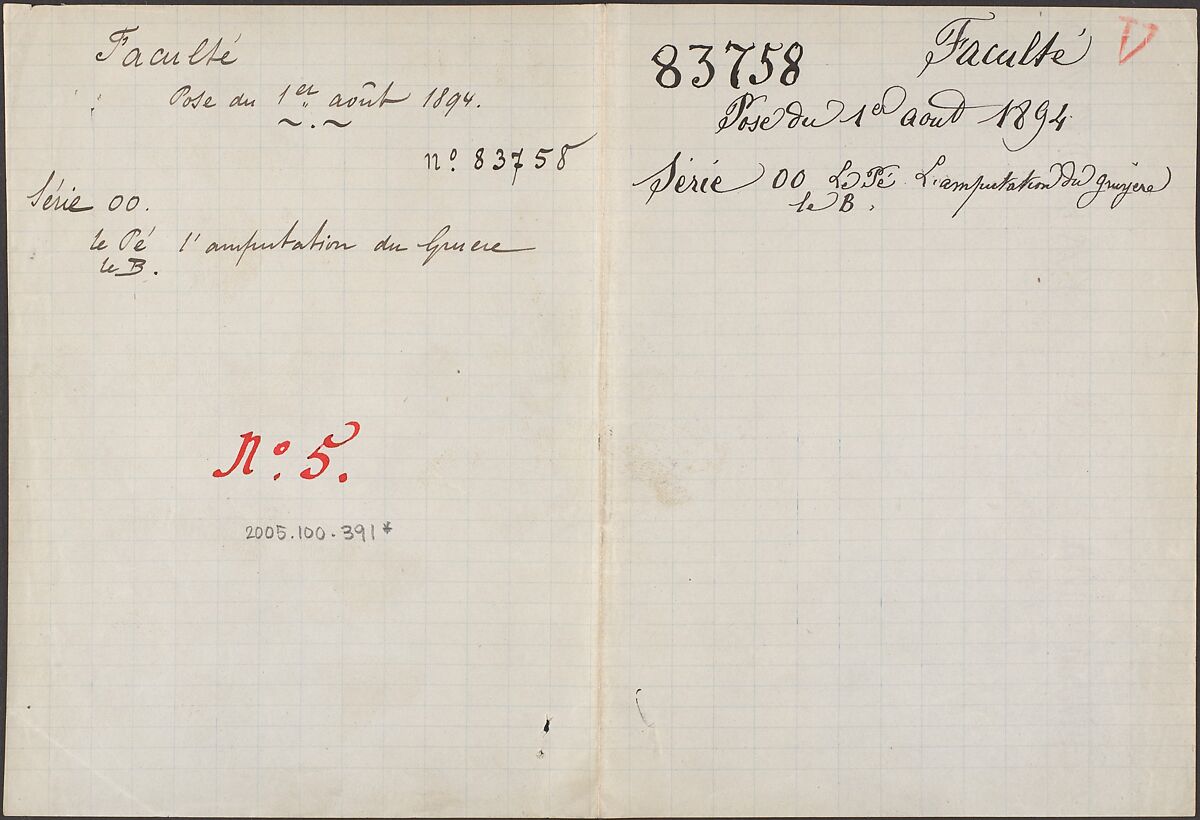 Faculté
Pose du 1er août 1894.
no. 83758
Série 00.
le Pé l'amputation du Gruere
le B.
No. 5.
2005.100.391*
83758 Faculté V
Pose du 1er aout 1894
Série 00 Le Pé L'amputation du gruyere
le B.